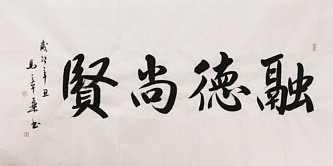 融德尚賢
歲次辛丑
馬宝章書